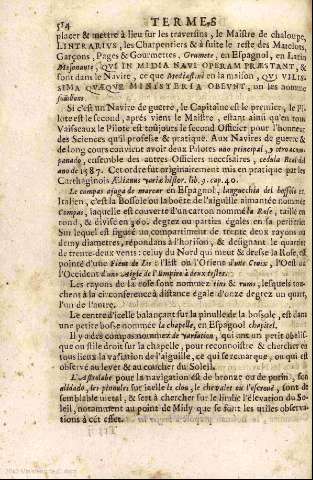 514 TERMES
placer & mettre à lieu sur les traversins, le Maistre de chaloupe,
LINTRARIUS, les Charpentiers & à suite le reste des Matelots,
Garçons, Pages & Gourmettes. Grumete, en Espagnol, en Latin
Mesonauta, QUI IN MEDIA NAVI OPERAM PRÆSTANT, &
sont dans le Navire, ce que Mediastini en la maison, QUI VILIS-
SIMA QUÆQUE MINISTERIA OBEUNT, un les nomme
Si c'est un Navire de guerre, le Capitaine est le premier, le Pi-
lote est le second, aprés vient le Maistre, estant ainsi qu'en tous
Vaisseaux le Pilote est toujours le second Officier pour l'honneur
des Sciences qu'il professe & pratique. Aux Navires de guerre &
de long cours convient avoir deux Pilotes uno principal, y otro acom-
panado, ensemble des autres Officiers necessaires, cedula Real del
ano de 1587. Cet ordre fut originairement mis en pratique par les
Carthaginois Ælianus variæ histor. lib. 9. cap. 40.
Le compas aguja de marear en Espagnol, languechia del bossolo en
Italien, c'est la Bossole ou la boëte de l'aiguille aimantée nommée
Compas, laquelle est couverte d'un carton nommé la Rose, taillé en
rond, & divisé en 360. degrez ou parties égales en sa periferie
Sur lequel est figuré un compartiment de trente deux rayons ou
demy diametres, répondans à l'horison, & désignant le quartier
de trente-deux vents: celuy du Nord qui meut & dresse la Rose, est
pointé d'une Fleur de Lys: l'Est ou l'Orient d'une Croix, l'Ouest ou
l'Occident d'une Aigle de l'Empire à deux testes.
Les rayons de la rose sont nommez rins & rums, lesquels tou-
chent à la circonference à distance égale d'onze degrez un quart,
l'un de l'autre.
Le centre d'icelle balançant sur la pinulle de la bossole, est dans
une petite bosse nommée la chapelle, en Espagnol chapitel.
Il y a des compas nommez de variation, qui ont un petit obelis-
que ou stile droit sur la chapelle, pour reconnoistre & chercher en
tous lieux la variation de l'aiguille, ce qui se remarque, ou qui est
observé au lever & au coucher du Soleil.
L'Astrolabe pour la navigation est de bronze ou de purin, son
alidade, les pinnules sur icelle le clou, le chevalet ou l'escrouë, sont de
semblable metal, & sert à chercher sur le limbe l'élevation du So-
leil, notamment au point de Midy que se font les utiles observa-
tions à cet effet.